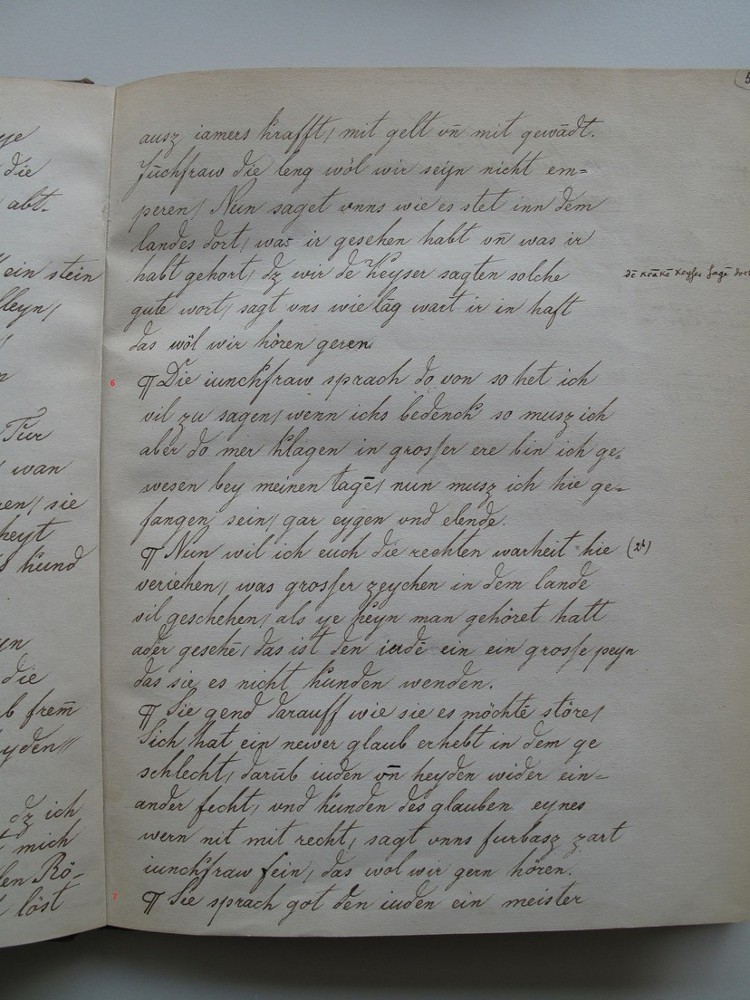 ausz iamers krafft/ mit gelt vn̄ mit gewādt.
Jūckfraw die leng wöl wir seijn nicht em=
peren/ Nun saget vnns wie es stet inn dem
landes dort/ was ir gesehen habt vn̄ was ir
habt gehort/ dz wir de Keyser sagten solche
gute wort/ sagt vns wie lāg wart ir in haft
das wöl wir hören geren
6 ¶ Die iunckfraw sprach do von so het ich
vil zu sagen/ wenn ichs bedenck so musz ich
aber do mer klagen in grosser ere bin ich ge=
wesen bey meinen tagē/ nun musz ich hie ge=
fangen sein/ gar eygen vnd elende.
¶ Nun wil ich euch die rechten warheit hie
veriehen/ was grosser zeychen in dem lande
sil geschehen/ als ye keyn man gehöret hatt
ader gesehē/ das ist den iudē ein ein grosse peyn
das sie es nicht kunden wenden.
¶ Sie gend darauff wie sie es möchtē störe/
Sich hat ein newer glaub erhebt in dem ge
schlecht/ darūb iuden vn̄ heyden wider ein=
ander fecht/ vnd kunden des glauben eynes
wern nit mit recht/ sagt vnns furbasz zart
iunckfraw fein/ das wol wir gern hören.
7 ¶ Sie sprach got den iuden ein meister
ye
die
abt.
ein stein
lleyn/
n
Tur
/ wan
ren/ sie
heyt
s kund
yn
die
b frem̄
yden//
dz ich
t mich
len Rö=
löst
5